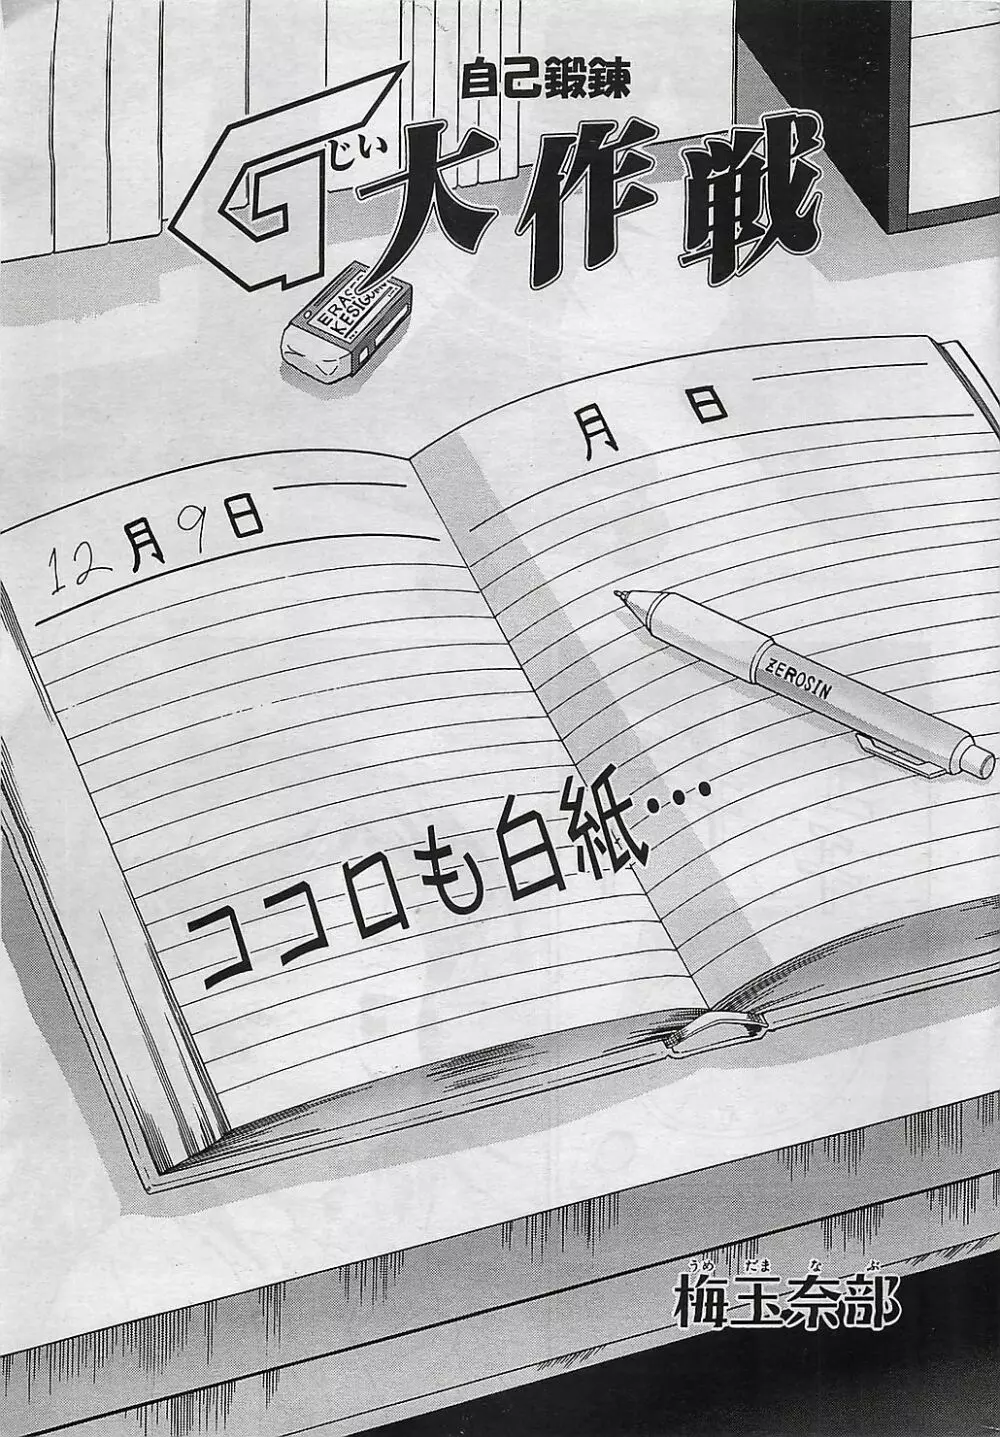 自己鍛錬
G大作戦
じい
ERAS
KESIGO
月 日
12月9日
ZEROSIN
ココロも白紙…
うめ だま な ぶ
梅玉奈部